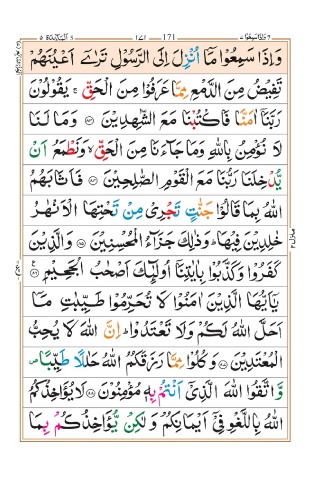 وَاِذَا سَمِعُوْا ٧ ١٧١ 171 اَلْمَآئِدَة ٥
وَاِذَا سَمِعُوْا مَاۤ اُنْزِلَ اِلَى الرَّسُوْلِ تَرٰۤى اَعْيُنَهُمْ
تَفِيْضُ مِنَ الدَّمْعِ مِمَّا عَرَفُوْا مِنَ الْحَقِّ ۚ يَقُوْلُوْنَ
رَبَّنَاۤ اٰمَنَّا فَاكْتُبْنَا مَعَ الشّٰهِدِيْنَ ﴿۸۳﴾ وَمَا لَنَا
لَا نُؤْمِنُ بِاللّٰهِ وَمَا جَآءَنَا مِنَ الْحَقِّ ۙ وَنَطْمَعُ اَنْ
يُّدْخِلَنَا رَبُّنَا مَعَ الْقَوْمِ الصّٰلِحِيْنَ ﴿۸۴﴾ فَاَثَابَهُمُ
اللّٰهُ بِمَا قَالُوْا جَنّٰتٍ تَجْرِىْ مِنْ تَحْتِهَا الْاَنْهٰرُ
خٰلِدِيْنَ فِيْهَا ؕ وَذٰلِكَ جَزَآءُ الْمُحْسِنِيْنَ ﴿۸۵﴾ وَالَّذِيْنَ
كَفَرُوْا وَكَذَّبُوْا بِاٰيٰتِنَاۤ اُولٰٓئِكَ اَصْحٰبُ الْجَحِيْمِ ﴿۸۶﴾
يٰۤاَيُّهَا الَّذِيْنَ اٰمَنُوْا لَا تُحَرِّمُوْا طَيِّبٰتِ مَاۤ
اَحَلَّ اللّٰهُ لَكُمْ وَلَا تَعْتَدُوْا ؕ اِنَّ اللّٰهَ لَا يُحِبُّ
الْمُعْتَدِيْنَ ﴿۸۷﴾ وَكُلُوْا مِمَّا رَزَقَكُمُ اللّٰهُ حَلٰلًا طَيِّبًا ۪
وَّاتَّقُوا اللّٰهَ الَّذِىْۤ اَنْتُمْ بِهٖ مُؤْمِنُوْنَ ﴿۸۸﴾ لَا يُؤَاخِذُكُمُ
اللّٰهُ بِاللَّغْوِ فِىْۤ اَيْمَانِكُمْ وَلٰكِنْ يُّؤَاخِذُكُمْ بِمَا